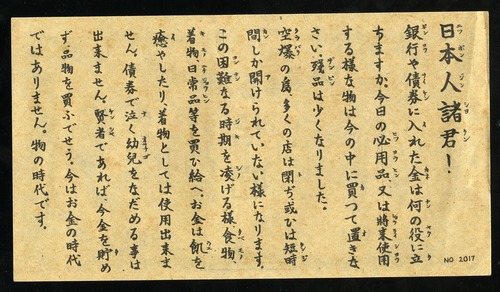 日本人諸君！
銀行や債券に入れた金は何の役に立
ちますか。今日の必用品、又は将来使用
する様な物は今の中に買つて置きな
さい。残品は少くなりました。
空爆の為、多くの店は閉ぢ、或ひは短時
間しか開けられていない様になります。
この困難なる時期を凌げる様食物、
着物、日常品等を買ひ給へ。お金は飢を
癒やしたり、着物としては使用出来ま
せん。債券で泣く幼兒をなだめる事は
出来ません。賢者であれば、今金を貯め
ず、品物を買ふでせう。今はお金の時代
ではありません。物の時代です。
NO 2017